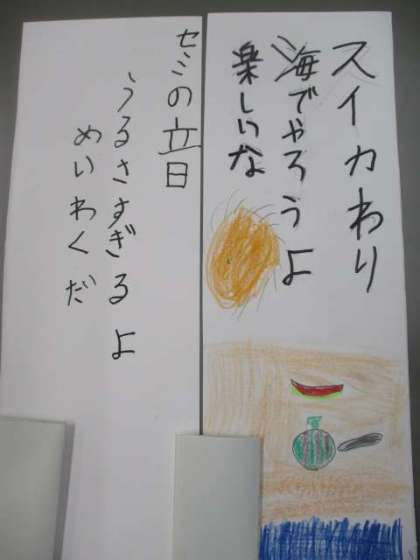 スイカわり
海でやろうよ
楽しいな
セミの音
うるさすぎるよ
めいわくだ